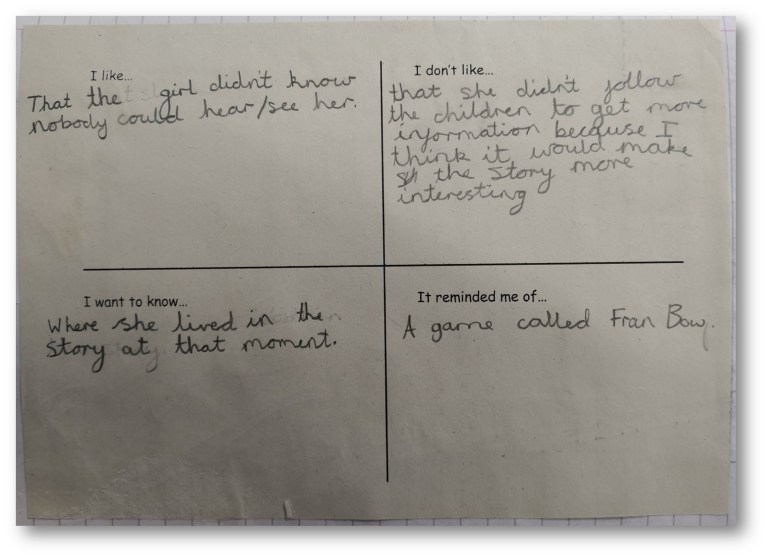 I like...
That the girl didn't know
nobody could hear/see her.
I don't like...
that she didn't follow
the children to get more
information because I
think it would make
the story more
interesting
I want to know...
Where she lived in the
story at that moment.
It reminded me of...
A game called Fran Bow.